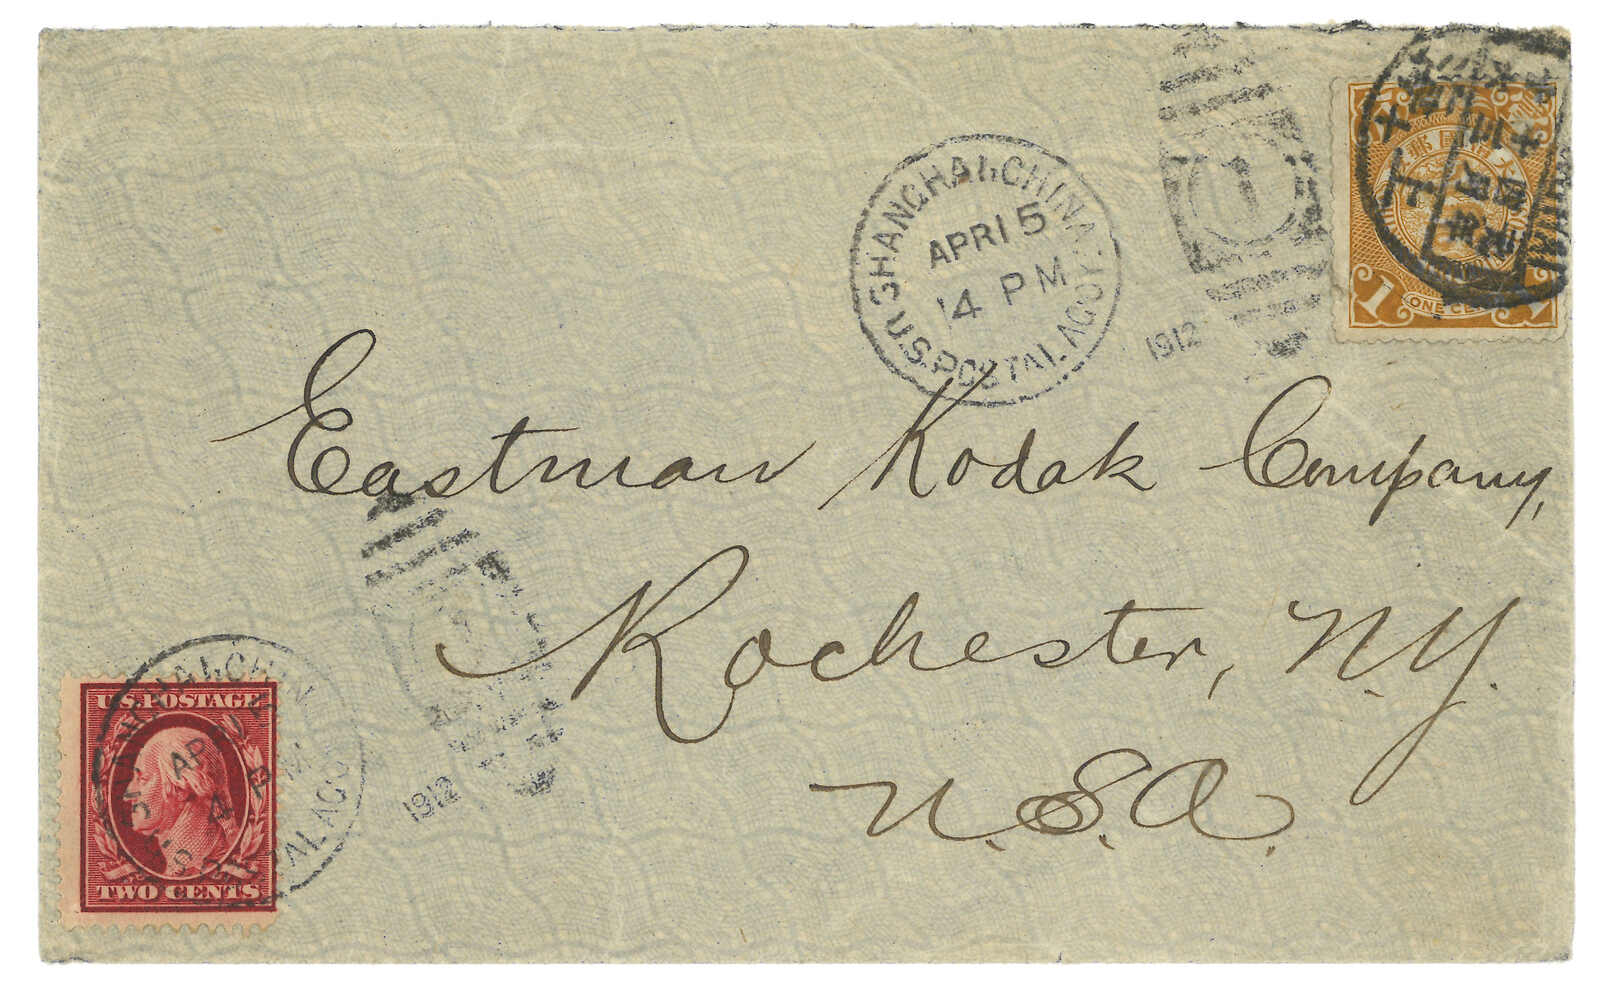 SHANGHAI, CHINA.
U.S. POSTAL AGCY.
APR 15
4 PM
1912
1
1
ONE CE
1
Eastman Kodak Company,
Rochester, N.Y.
U.S.A.
1912
U.S. POSTAGE
TWO CENTS
SHANGHAI, CHIN
POSTAL AGCY
APR 15
4 PM